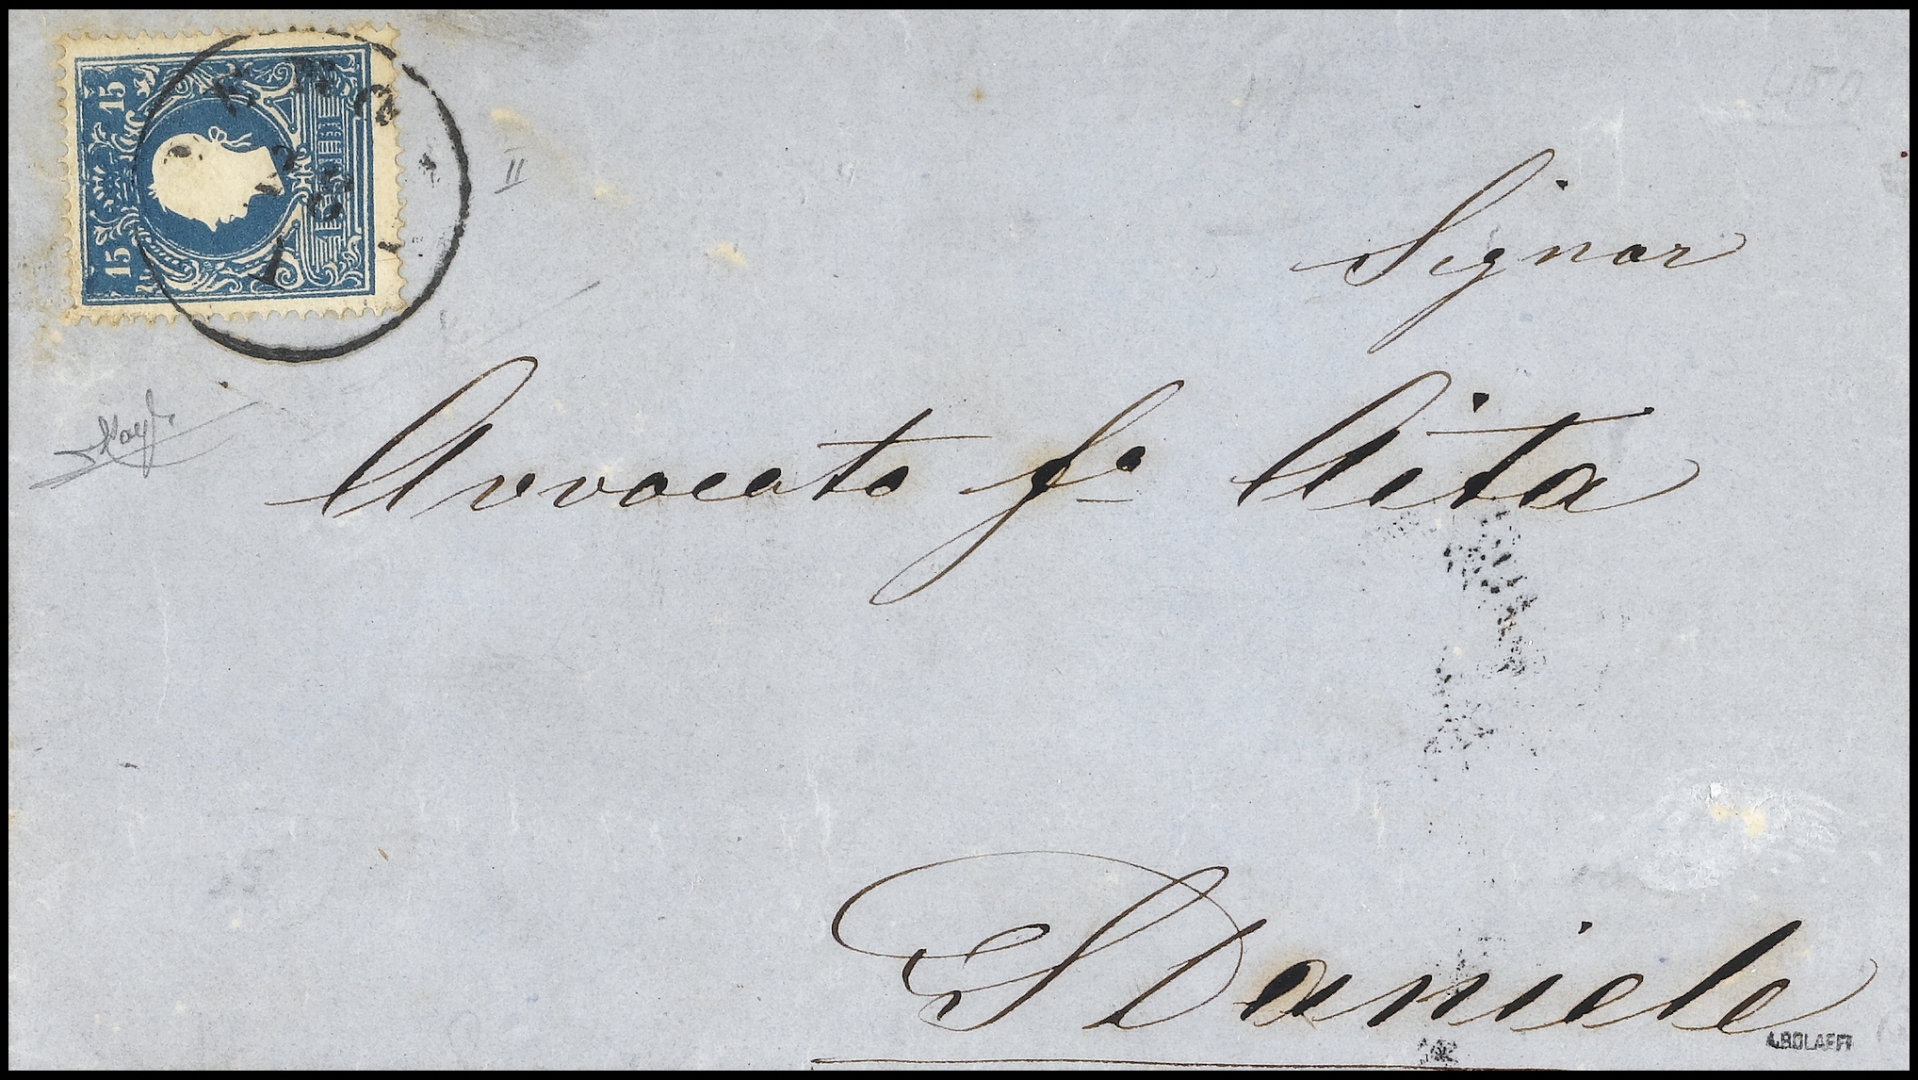 15 15
II
Signor
Avvocato fo Aita
S Daniele
A.BOLAFFI